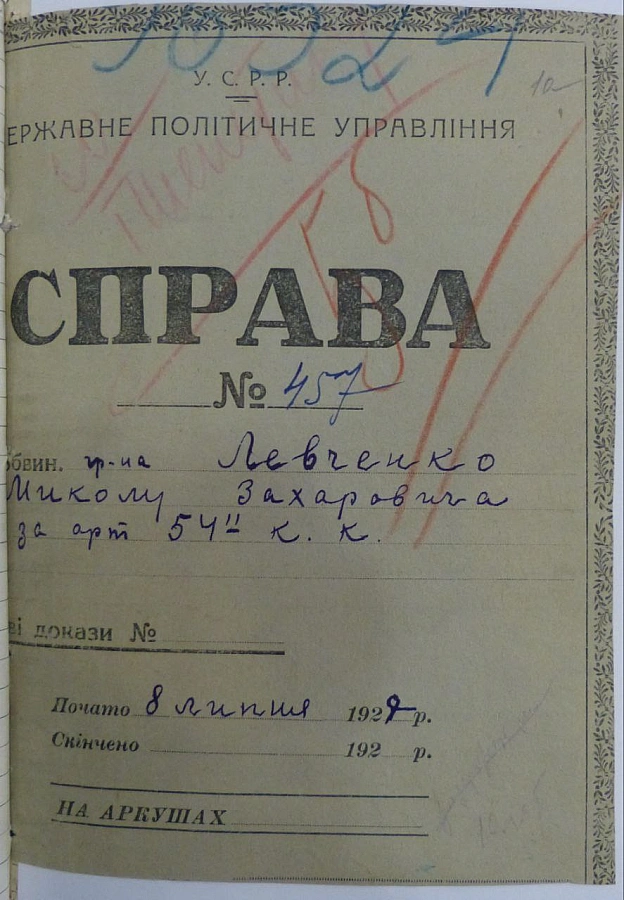 10324
1а
У. С. Р. Р.
ЕРЖАВНЕ ПОЛІТИЧНЕ УПРАВЛІННЯ
СПРАВА
№ 457
обвин. гр-на Левченко
Миколу Захаровича
за арт 54¹¹ К. К.
ві докази №
Почато 8 липня 1929 р.
Скінчено 192 р.
НА АРКУШАХ